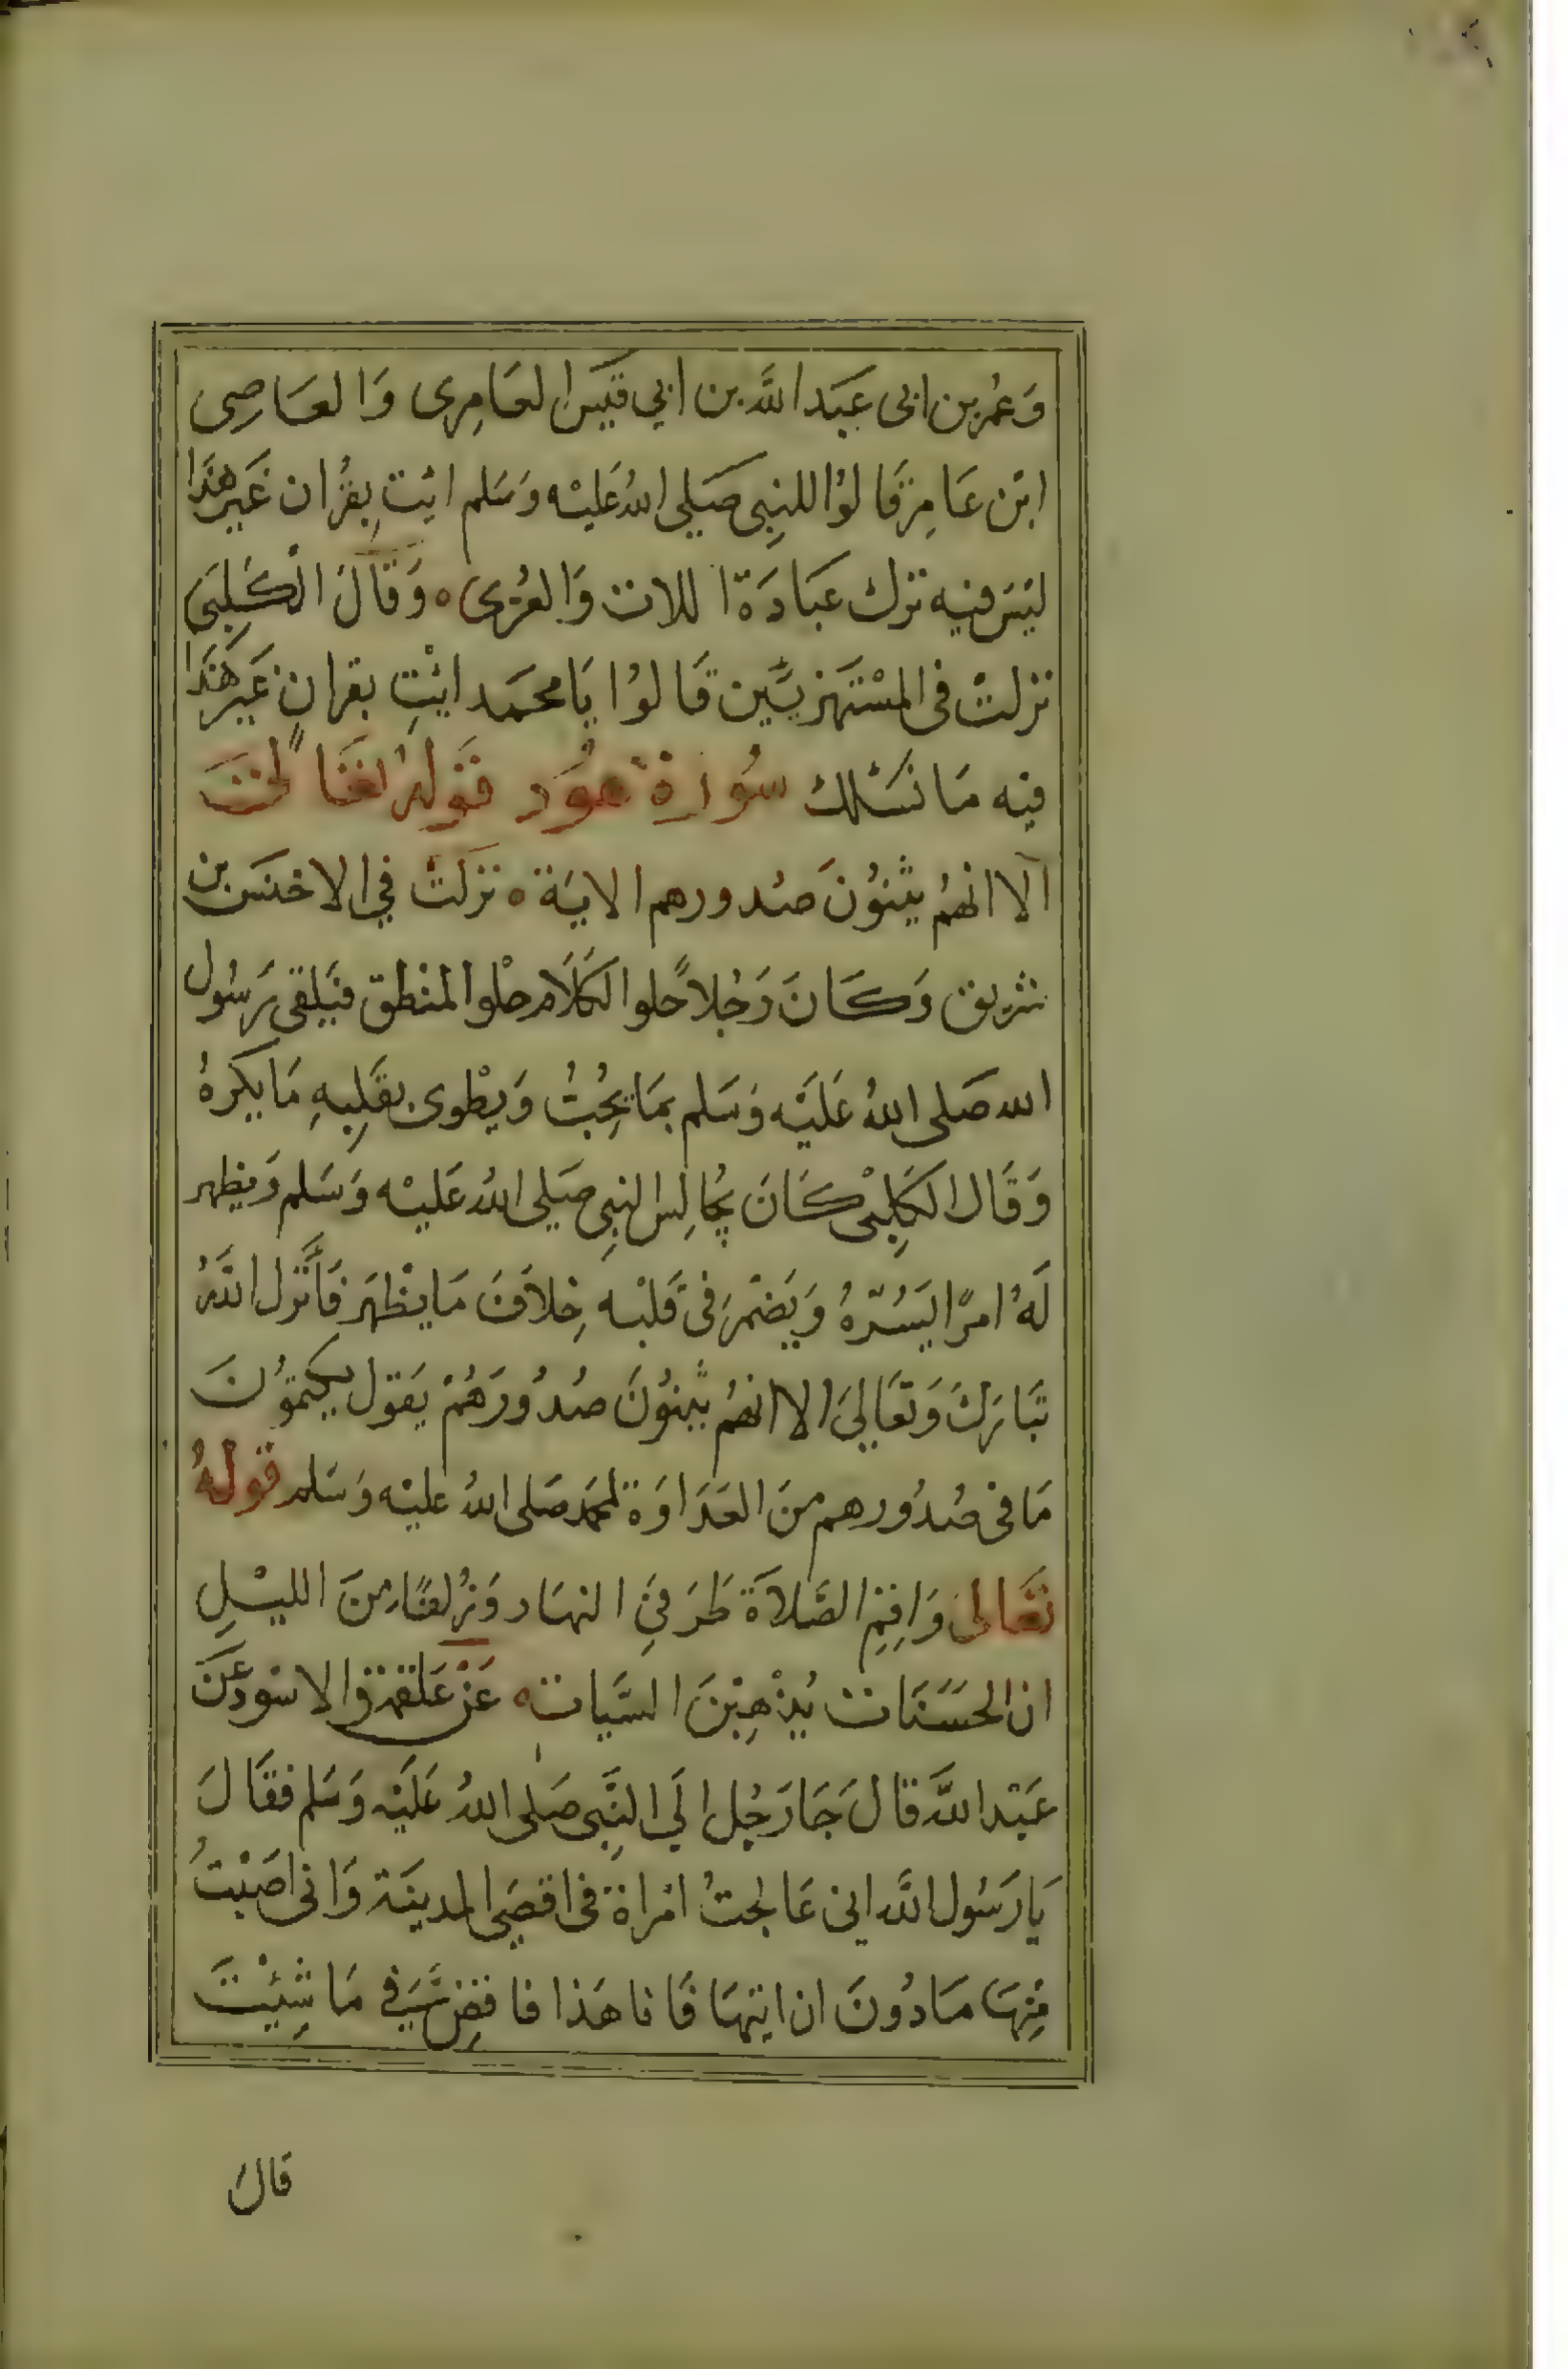 وَعُمَر بن ابى عَبَد اللَّه بن ابي قيَس العَامِرى وَالعَاصِى
ابْن عَامِر قَالوُا للنِبِى صَلى اللهُ عَليْه وَسَلم ايْتِ بِقُرْان غَيَر هَذَا
ليَسَ فيْه تَرك عبَادَة اللات وَالعُزّى ه وَقَالَ الْكَلبَى
نزلتْ فى المسْتَهزيَّين قَالوُا يَا محمَد ايْتِ بقرانٍ غَيَر هَذَا
فيه مَا نَسْلك سُورَة هُود قَولهُ تَعَالى
اَلا انهُم يثْنوُنَ صُدورهم الايَة ه نزَلَتْ في الاخنسَ بن
شريق وَكَانَ رَجُلاً حلو الكَلَام حلْو المنْطق فيَلقى رَسُول
الله صَلى اللهُ عَليَه وَسَلم بمَا يُحِبُ وَيطْوى بقَلِبهِ مَا يكرهُ
وَقَال الكَلِبْى كَانَ يُجَالِس النبِى صَلى اللهُ عَليْه وَسَلم وَيظهر
لَهُ امرًا يَسُرّهُ وَيَضمْرَ فى قَلبْه خِلافَ مَا يظْهَر فَأَنْزل اللَّهُ
تبَارَكَ وَتعَالىَ الا انهُم يثْنوُنَ صُدُورَهُمْ يَقول يكتموُنَ
مَا فى صُدُورهم منَ العَدَاوَة لمحمَد صَلى اللهُ عليْه وَسَلم قولهُ
تعَالىَ وَاقِمِ الصَّلاَة طَرَفىَ النهَار وَزُلفًا مِنَ الليْلِ
ان الحسَنَات يُذْهِبْنَ السَّيات ه عَنْ عَلقمَة والاسْود عَنَ
عَبْد اللَّه قالَ جَا رَجُل الَي النَّبِى صَلى اللهُ عَليَه وَسَلم فقَالَ
يَا رَسُول اللَّه انى عَالجتُ امْراة فى اقصَى المدينَة وَانى اصَبْتُ
مِنْهَا مَادُونَ ان اتيهَا فَانا هَذا فاقضِ فيَّ مَا شِيْتَ
قالَ